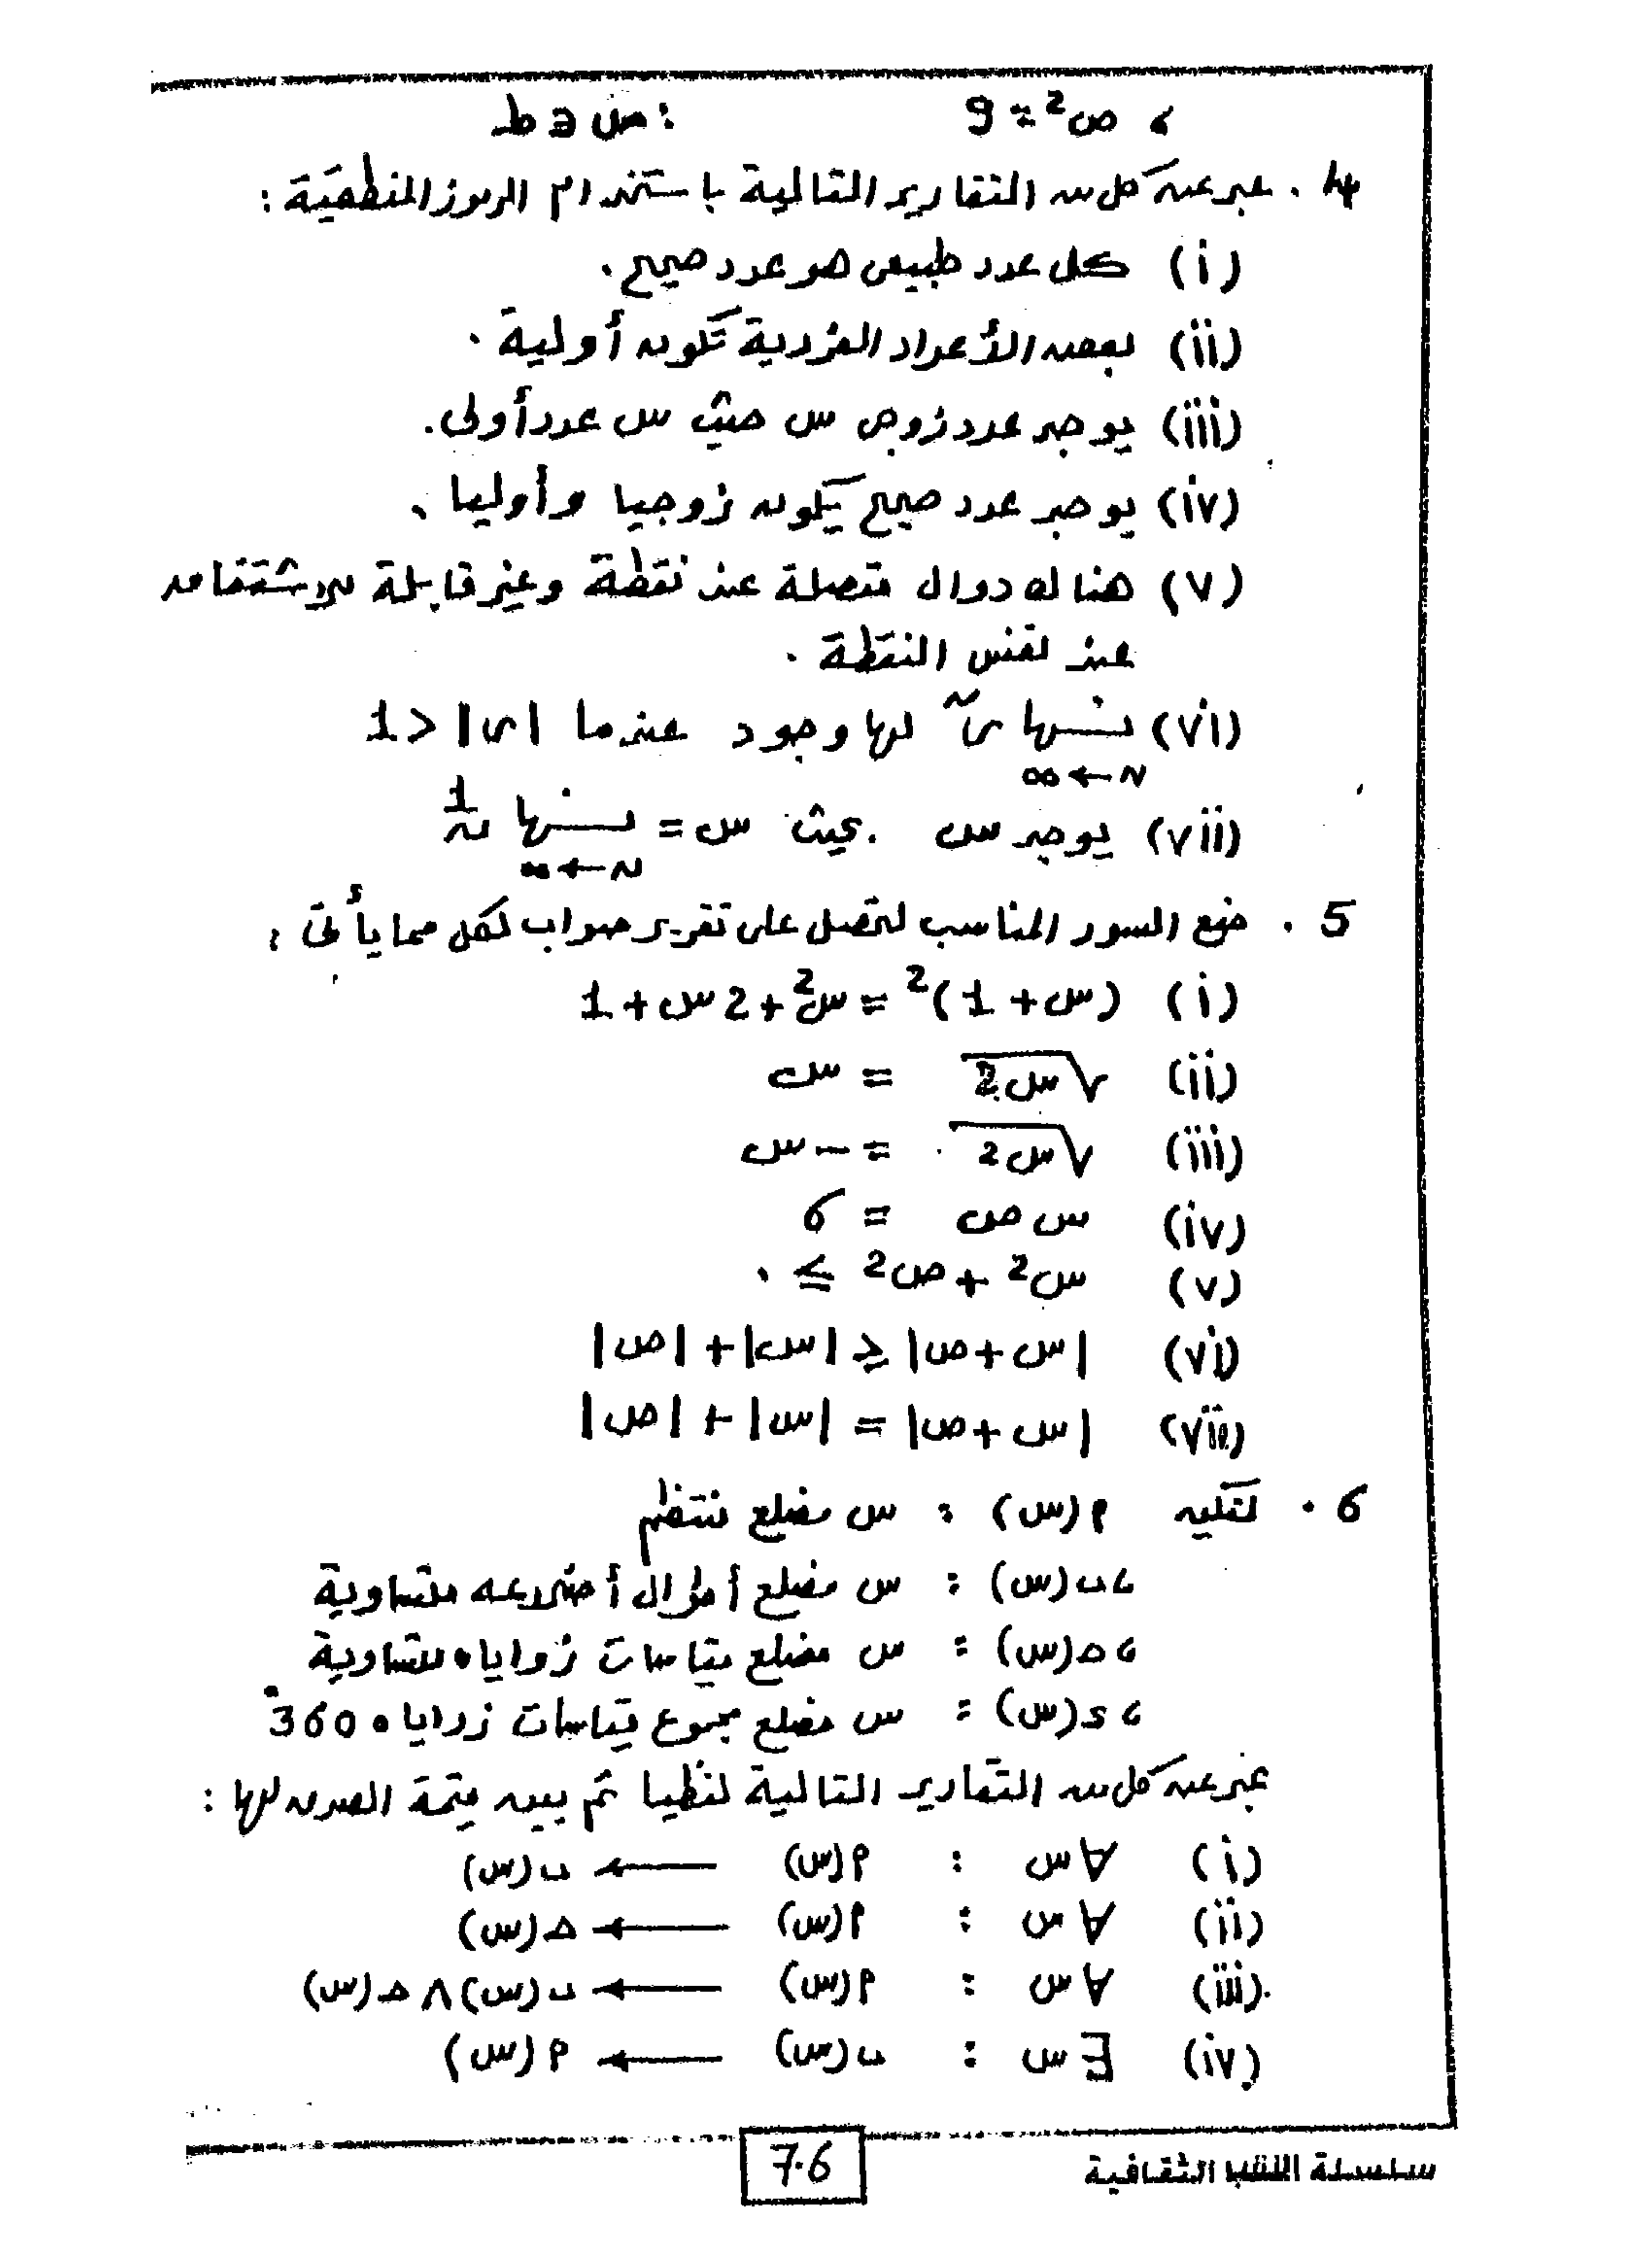 ، ص² = 9 : ص ∈ ط
4 . عبر عن كل من التقارير التالية باستخدام الرموز المنطقية :
(i) كل عدد طبيعى هو عدد صحيح .
(ii) بعض الأعداد الفردية تكون أولية .
(iii) يوجد عدد زوجى س حيث س عدد أولى .
(iv) يوجد عدد صحيح يكون زوجيا وأوليا .
(v) هناك دوال متصلة عند نقطة وغير قابلة للاشتقاق
عند نفس النقطة .
(vi) نهــا رⁿ لها وجود عندما |ر| < 1
ن ← ∞
(vii) يوجد س بحيث س = نهــا 1/ن
ن ← ∞
5 . ضع السور المناسب لتحصل على تقرير صواب لكل مما يأتى :
(i) (س + 1)² = س² + 2 س + 1
(ii) √س2 = س
(iii) √س2 = – س
(iv) س ص = 6
(v) س² + ص² ≥ ٠
(vi) |س + ص| ≤ |س| + |ص|
(vii) |س + ص| = |س| + |ص|
6 . لتكن م (س) : س مضلع منتظم
، ب (س) : س مضلع أطوال أضلاعه متساوية
، ح (س) : س مضلع قياسات زواياه متساوية
، د (س) : س مضلع مجموع قياسات زواياه 360°
عبر عن كل من التقارير التالية لفظيا ثم بين قيمة الصدق لها :
(i) ∀ س : م (س) ← ب (س)
(ii) ∀ س : م (س) ← ح (س)
(iii) ∀ س : م (س) ← ب (س) ∧ ح (س)
(iv) ∃ س : ب (س) ← م (س)
7.6
سلسلة الثقافية